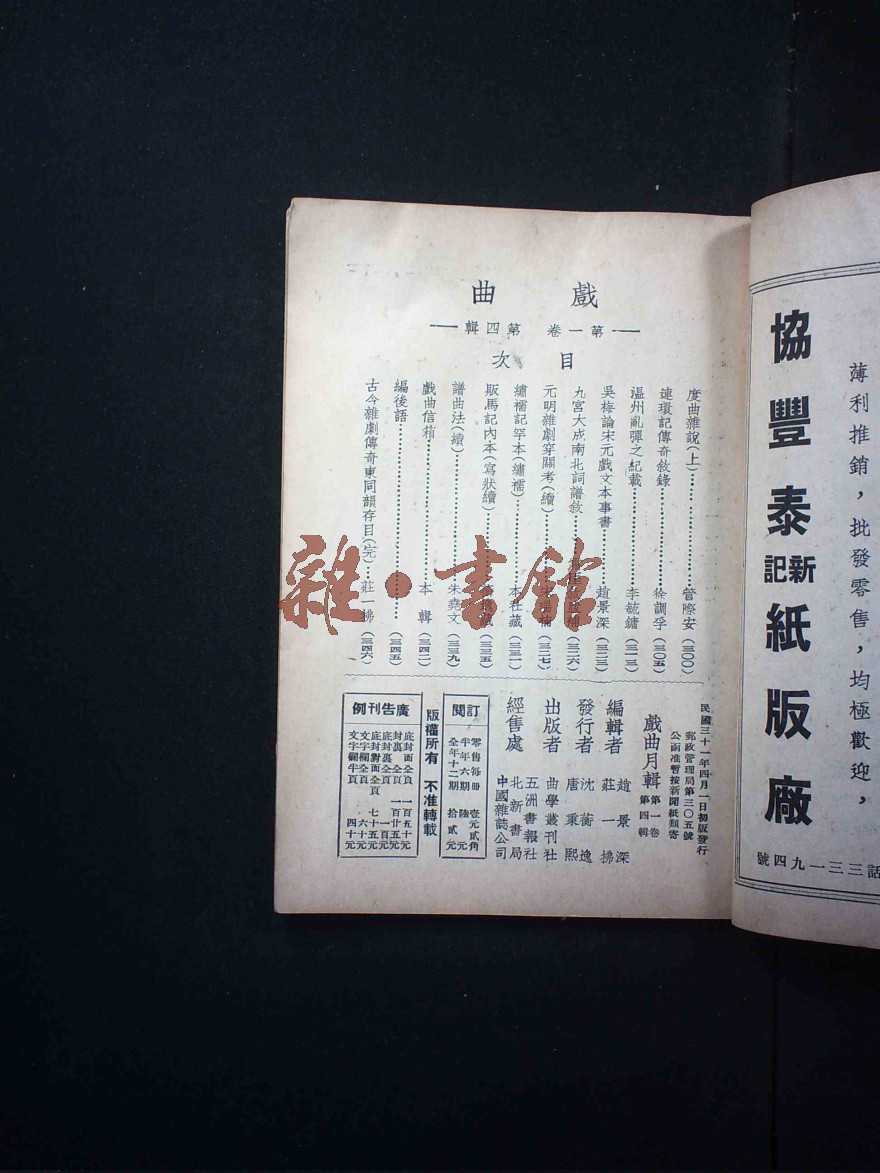 戲曲
第一卷 第四輯
目次
度曲雜說(上)………管際安(三〇〇)
連環記傳奇敘錄………徐調孚(三〇五)
温州亂彈之紀載………李毓鏞(三一三)
吳梅論宋元戲文本事書………趙景深(三二三)
九宮大成南北詞譜敘………(三二六)
元明雜劇穿關考(續)………(三二七)
繡襦記罕本(繡襦)………本社藏(三三一)
販馬記內本(寫狀續)………(三三五)
譜曲法(續)………朱堯文(三三九)
戲曲信箱………本輯(三四二)
編後語………(三四五)
古今雜劇傳奇東同韻存目(完)·莊一拂(三四六)
民國三十一年四月一日初版發行
郵政管理局第三〇五號
公函准暫按新聞紙類寄
戲曲月輯 第一卷 第四輯
編輯者 趙景深 莊一拂
發行者 沈蘅逸 唐秉熙
出版者 曲學叢刊社
經售處 五洲書報社
北新書局
中國雜誌公司
訂閱
零售每冊 壹元貳角
半年六期 陸元
全年十二期 拾貳元
版權所有 不准轉載
廣告刊例
底封面全頁 一百五十元
封裏全頁 一百廿五元
底封裏全頁 一百元
底封對面全頁 七十五元
文字欄全頁 六十元
文字欄半頁 四十元
雜·書館
薄利推銷，批發零售，均極歡迎，
協豐泰新記紙版廠
話三三一九四號